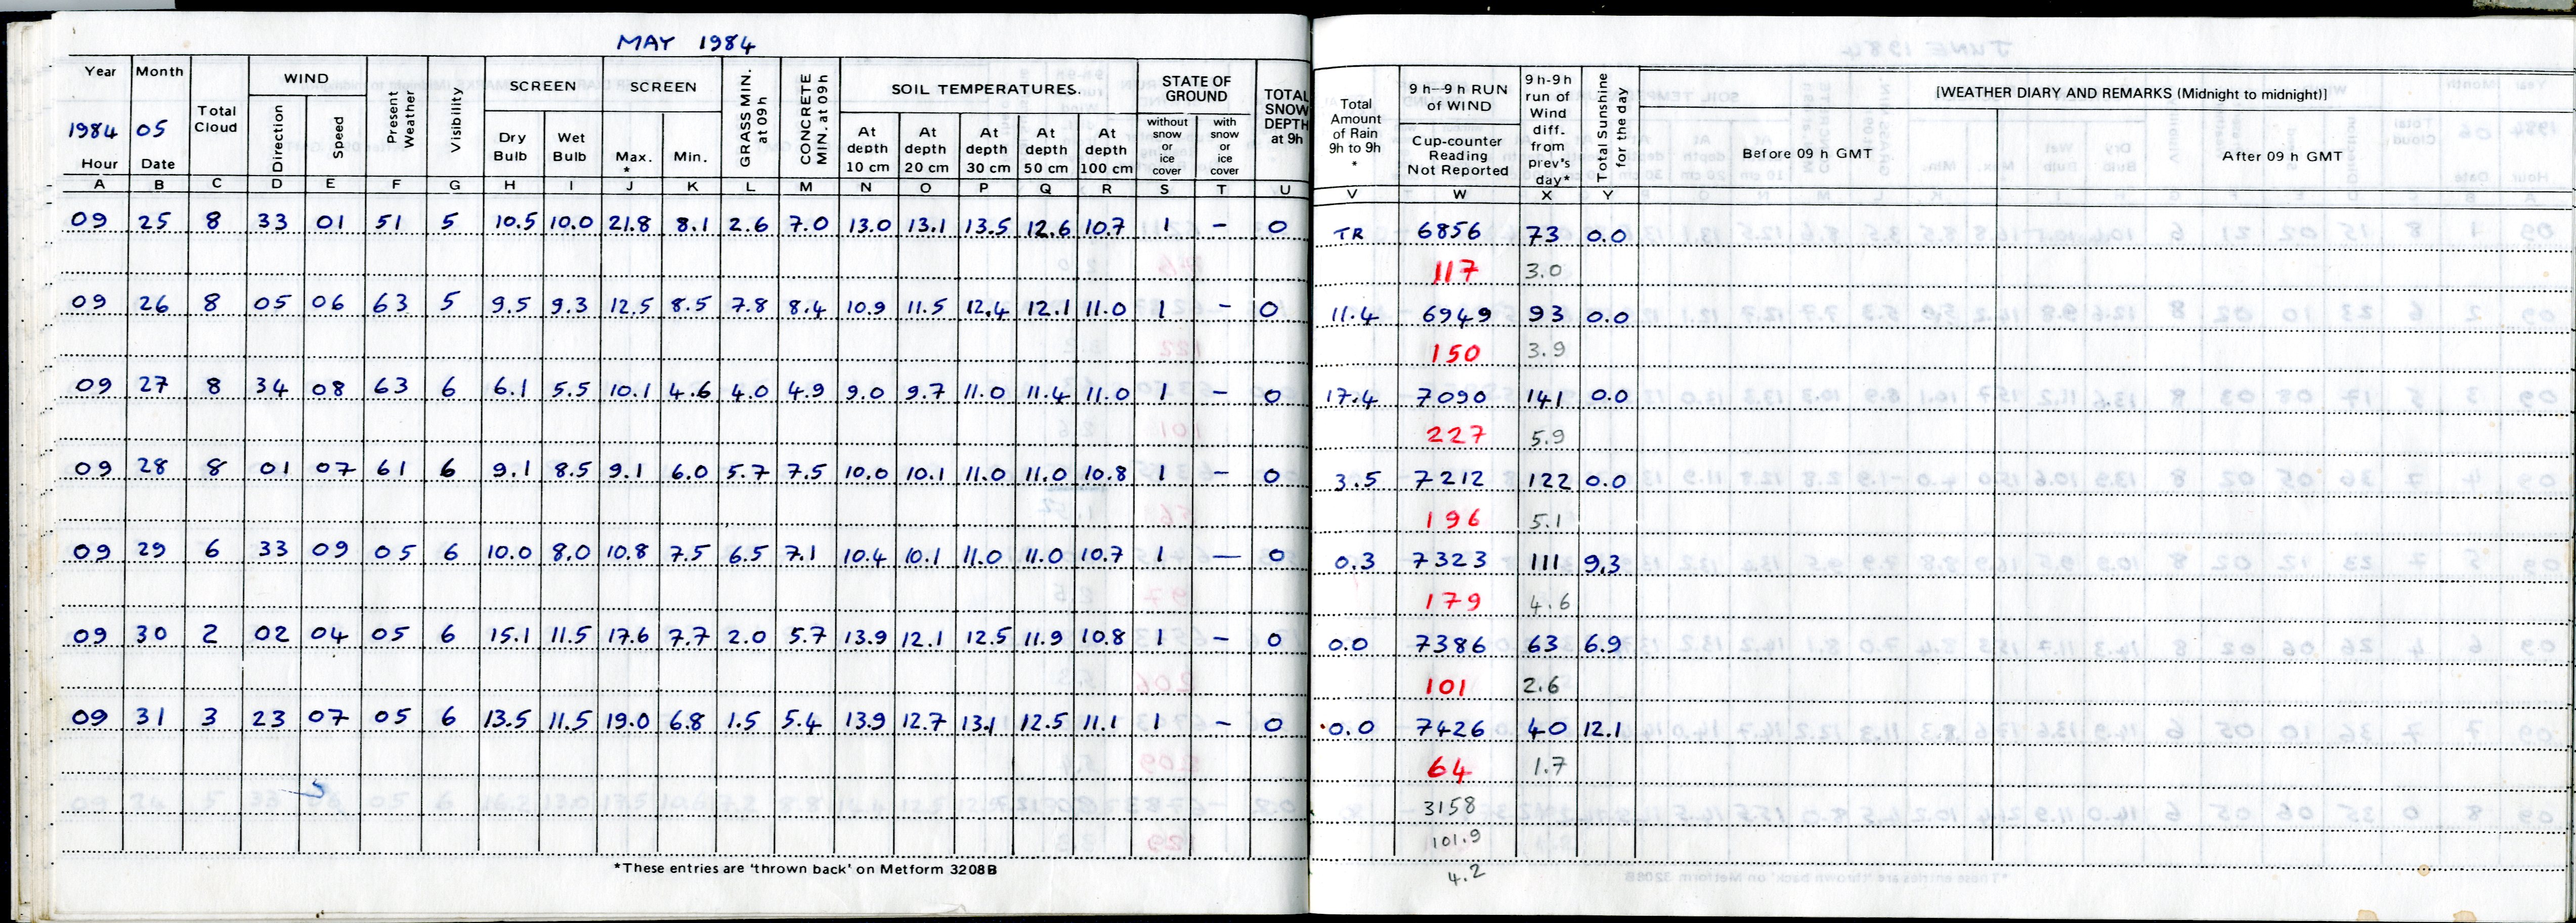 MAY 1984
Year Month Total Cloud WIND Direction Speed Present Weather Visibility SCREEN Dry Bulb Wet Bulb SCREEN Max. * Min. GRASS MIN. at 09h CONCRETE MIN. at 09h SOIL TEMPERATURES. At depth 10 cm At depth 20 cm At depth 30 cm At depth 50 cm At depth 100 cm STATE OF GROUND without snow or ice cover with snow or ice cover TOTAL SNOW DEPTH at 9h Total Amount of Rain 9h to 9h * 9 h–9 h RUN of WIND Cup-counter Reading Not Reported 9h-9h run of Wind diff. from prev's day* Total Sunshine for the day [WEATHER DIARY AND REMARKS (Midnight to midnight)]
1984 05
Hour Date Before 09 h GMT After 09 h GMT
A B C D E F G H I J K L M N O P Q R S T U V W X Y
09 25 8 33 01 51 5 10.5 10.0 21.8 8.1 2.6 7.0 13.0 13.1 13.5 12.6 10.7 1 – 0 TR 6856 73 0.0
117 3.0
09 26 8 05 06 63 5 9.5 9.3 12.5 8.5 7.8 8.4 10.9 11.5 12.4 12.1 11.0 1 – 0 11.4 6949 93 0.0
150 3.9
09 27 8 34 08 63 6 6.1 5.5 10.1 4.6 4.0 4.9 9.0 9.7 11.0 11.4 11.0 1 – 0 17.4 7090 141 0.0
227 5.9
09 28 8 01 07 61 6 9.1 8.5 9.1 6.0 5.7 7.5 10.0 10.1 11.0 11.0 10.8 1 – 0 3.5 7212 122 0.0
196 5.1
09 29 6 33 09 05 6 10.0 8.0 10.8 7.5 6.5 7.1 10.4 10.1 11.0 11.0 10.7 1 – 0 0.3 7323 111 9.3
179 4.6
09 30 2 02 04 05 6 15.1 11.5 17.6 7.7 2.0 5.7 13.9 12.1 12.5 11.9 10.8 1 – 0 0.0 7386 63 6.9
101 2.6
09 31 3 23 07 05 6 13.5 11.5 19.0 6.8 1.5 5.4 13.9 12.7 13.1 12.5 11.1 1 – 0 0.0 7426 40 12.1
64 1.7
3158
101.9
4.2
*These entries are 'thrown back' on Metform 3208B